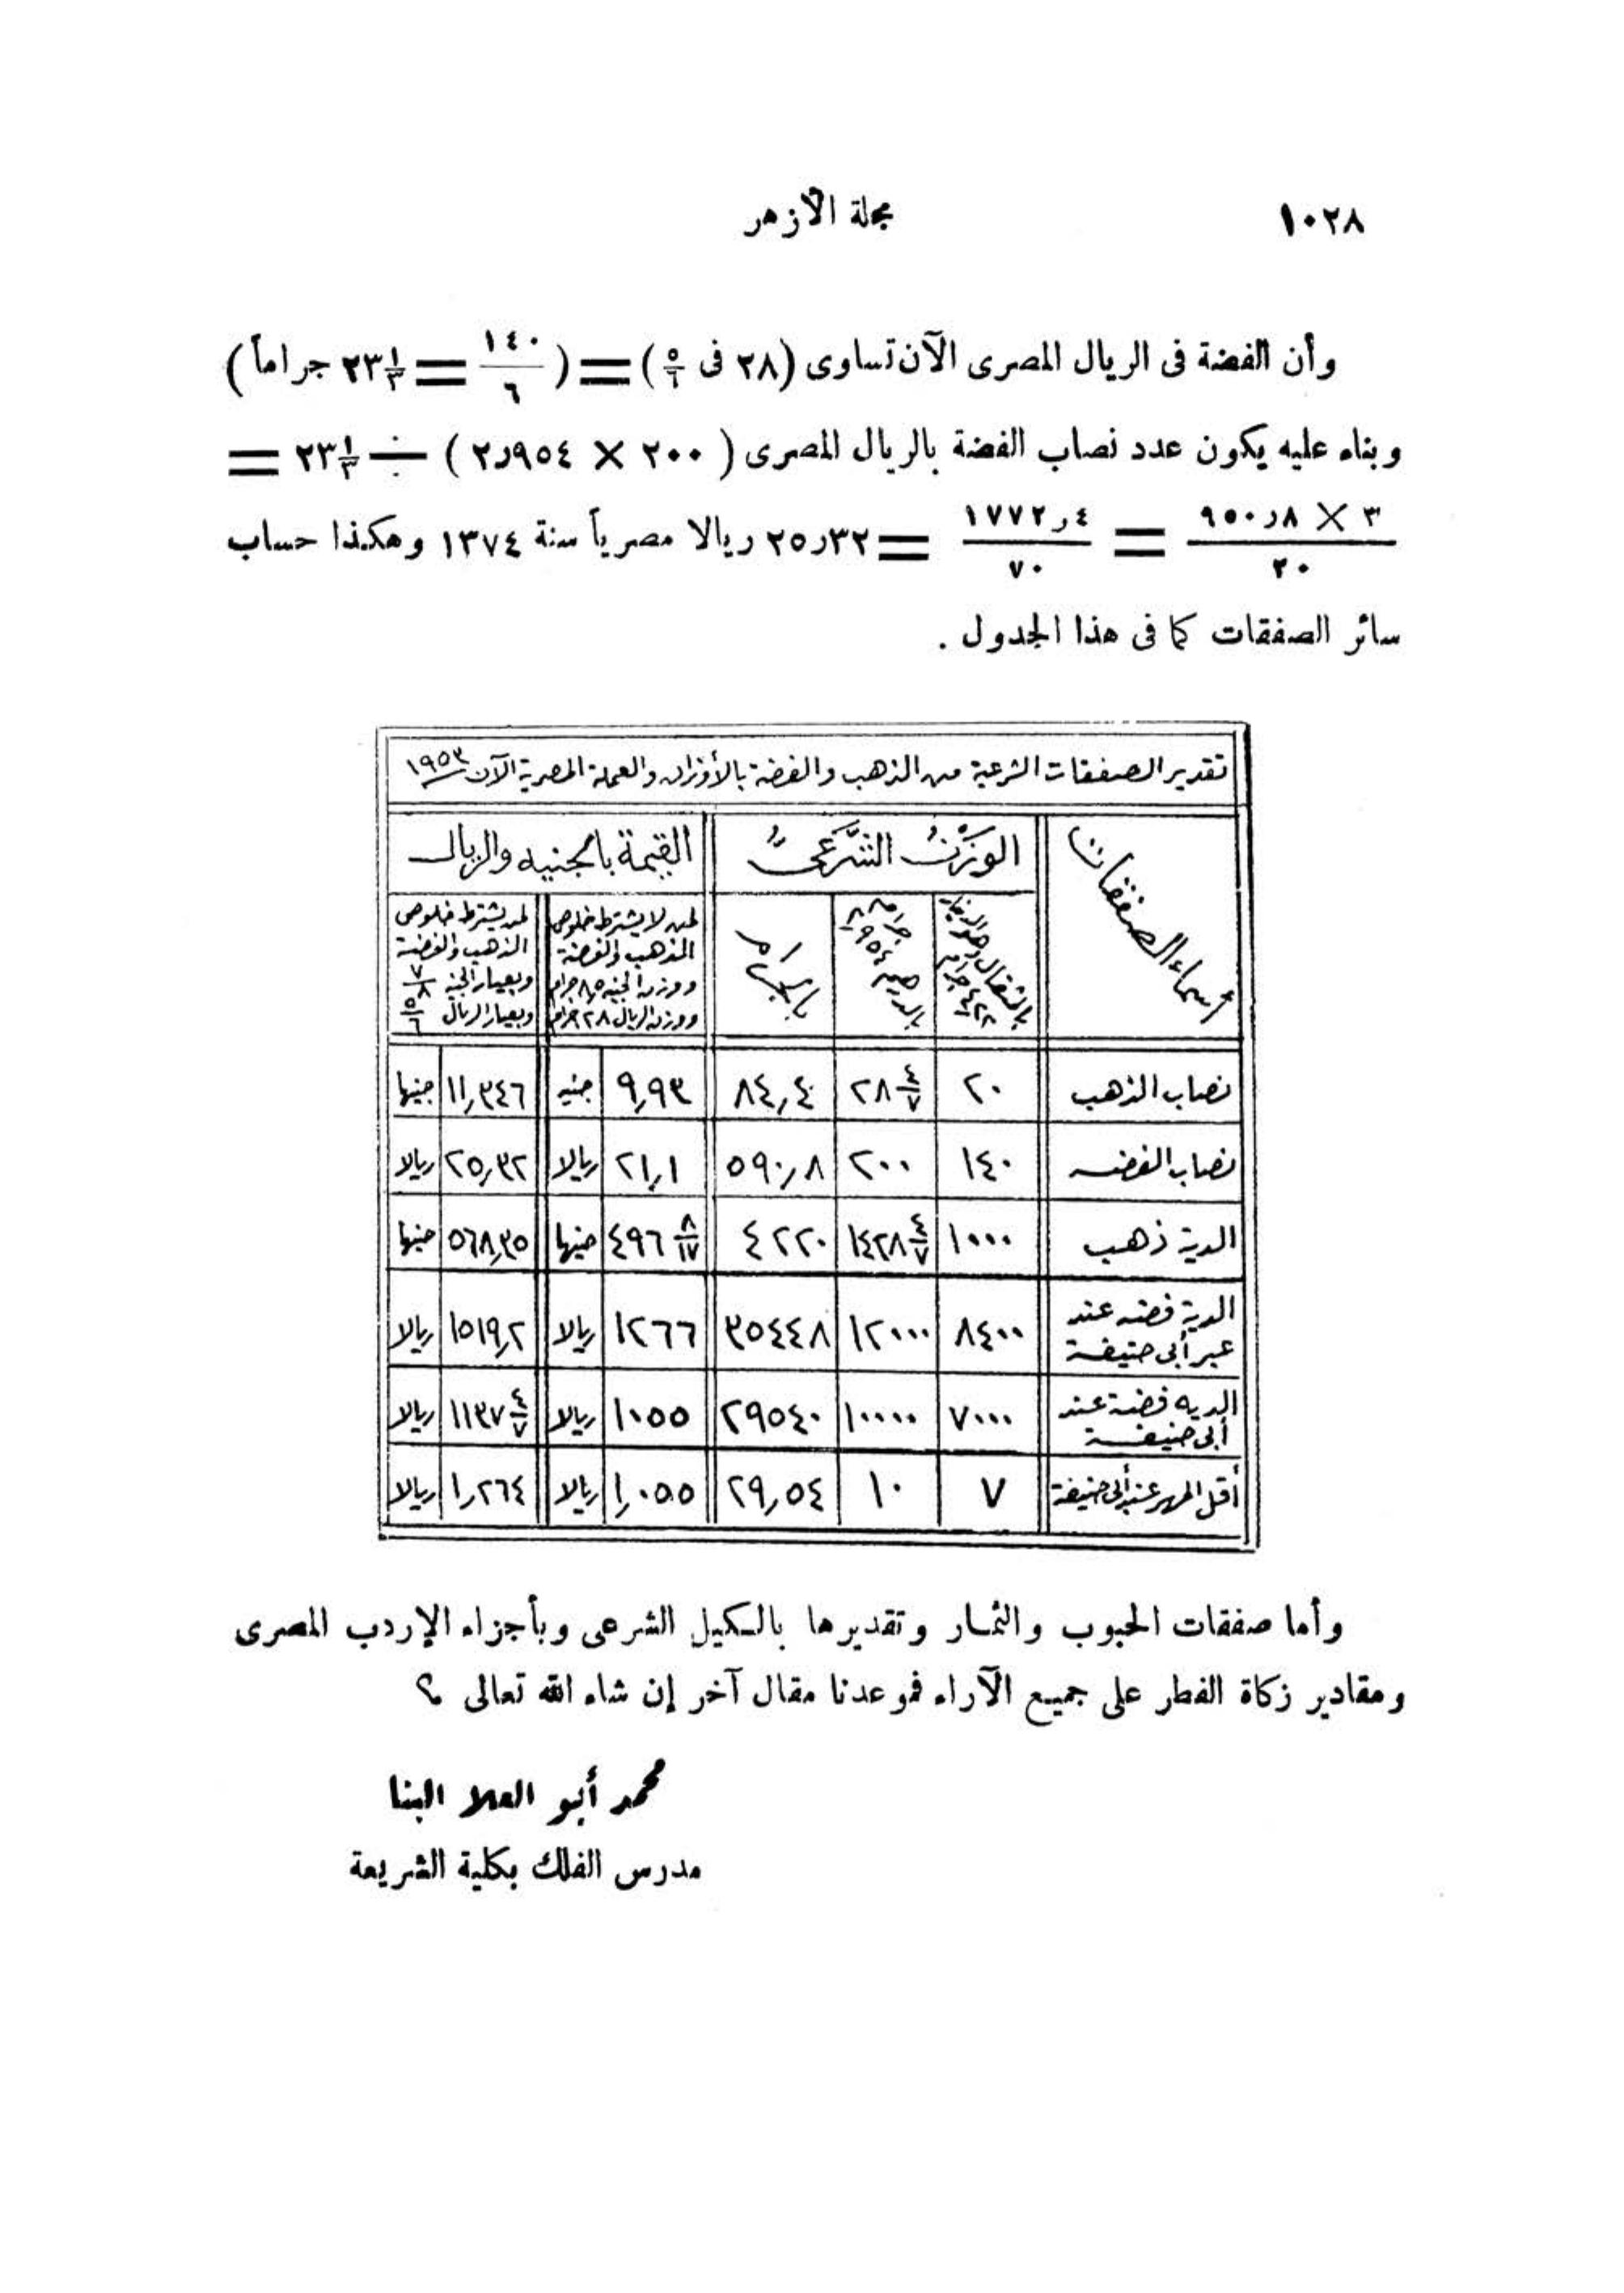 ١٠٢٨ مجلة الأزهر
وأن الفضة فى الريال المصرى الآن تساوى (٢٨ فى ٥/٦) = (١٤٠/٦ = ٢٣ ١/٣ جراماً)
وبناء عليه يكون عدد نصاب الفضة بالريال المصرى (٢٠٠ × ٢٫٩٥٤) ÷ ٢٣ ١/٣ =
٣ × ٩٥٠٫٨ / ٢٠ = ١٧٧٢٫٤ / ٧٠ = ٢٥٫٣٢ ريالا مصرياً سنة ١٣٧٤ وهكذا حساب
سائر الصفقات كما فى هذا الجدول .
تقدير الصفقات الشرعية من الذهب والفضة بالأوزان والعملة المصرية الآن ١٩٥٣
أسماء الصفقات
الوزن الشرعى
القيمة بالجنيه والريال
بالمثقال وهو الدينار ٤٫٢٢ جرام
بالدرهم ٢٫٩٥٤ جرام
بالجرام
لمن لا يشترط خلوص
الذهب والفضة
ووزن الجنيه ٨٫٥ جرام
ووزن الريال ٢٨ جرام
لمن يشترط خلوص
الذهب والفضة
وبعيار الجنيه ٧/٨
وبعيار الريال ٥/٦
نصاب الذهب ٢٠ ٢٨ ٤/٧ ٨٤٫٤ ٩٫٩٣ جنيه ١١٫٣٤٦ جنيها
نصاب الفضه ١٤٠ ٢٠٠ ٥٩٠٫٨ ٢١٫١ ريالا ٢٥٫٣٢ ريالا
الدية ذهب ١٠٠٠ ١٤٢٨ ٤/٧ ٤٢٢٠ ٤٩٦ ٨/١٧ جنيها ٥٦٨٫٣٥ جنيها
الدية فضه عند
غير أبى حنيفة ٨٤٠٠ ١٢٠٠٠ ٣٥٤٤٨ ١٢٦٦ ريالا ١٥١٩٫٢ ريالا
الديه فضة عند
أبى حنيفة ٧٠٠٠ ١٠٠٠٠ ٢٩٥٤٠ ١٠٥٥ ريالا ١١٣٧ ٤/٧ ريالا
أقل المهر عند أبى حنيفة ٧ ١٠ ٢٩٫٥٤ ١٫٠٥٥ ريالا ١٫٢٦٤ ريالا
وأما صفقات الحبوب والثمار وتقديرها بالكيل الشرعى وبأجزاء الإردب المصرى
ومقادير زكاة الفطر على جميع الآراء فموعدنا مقال آخر إن شاء الله تعالى ؟
محمد أبو العلا البنا
مدرس الفلك بكلية الشريعة